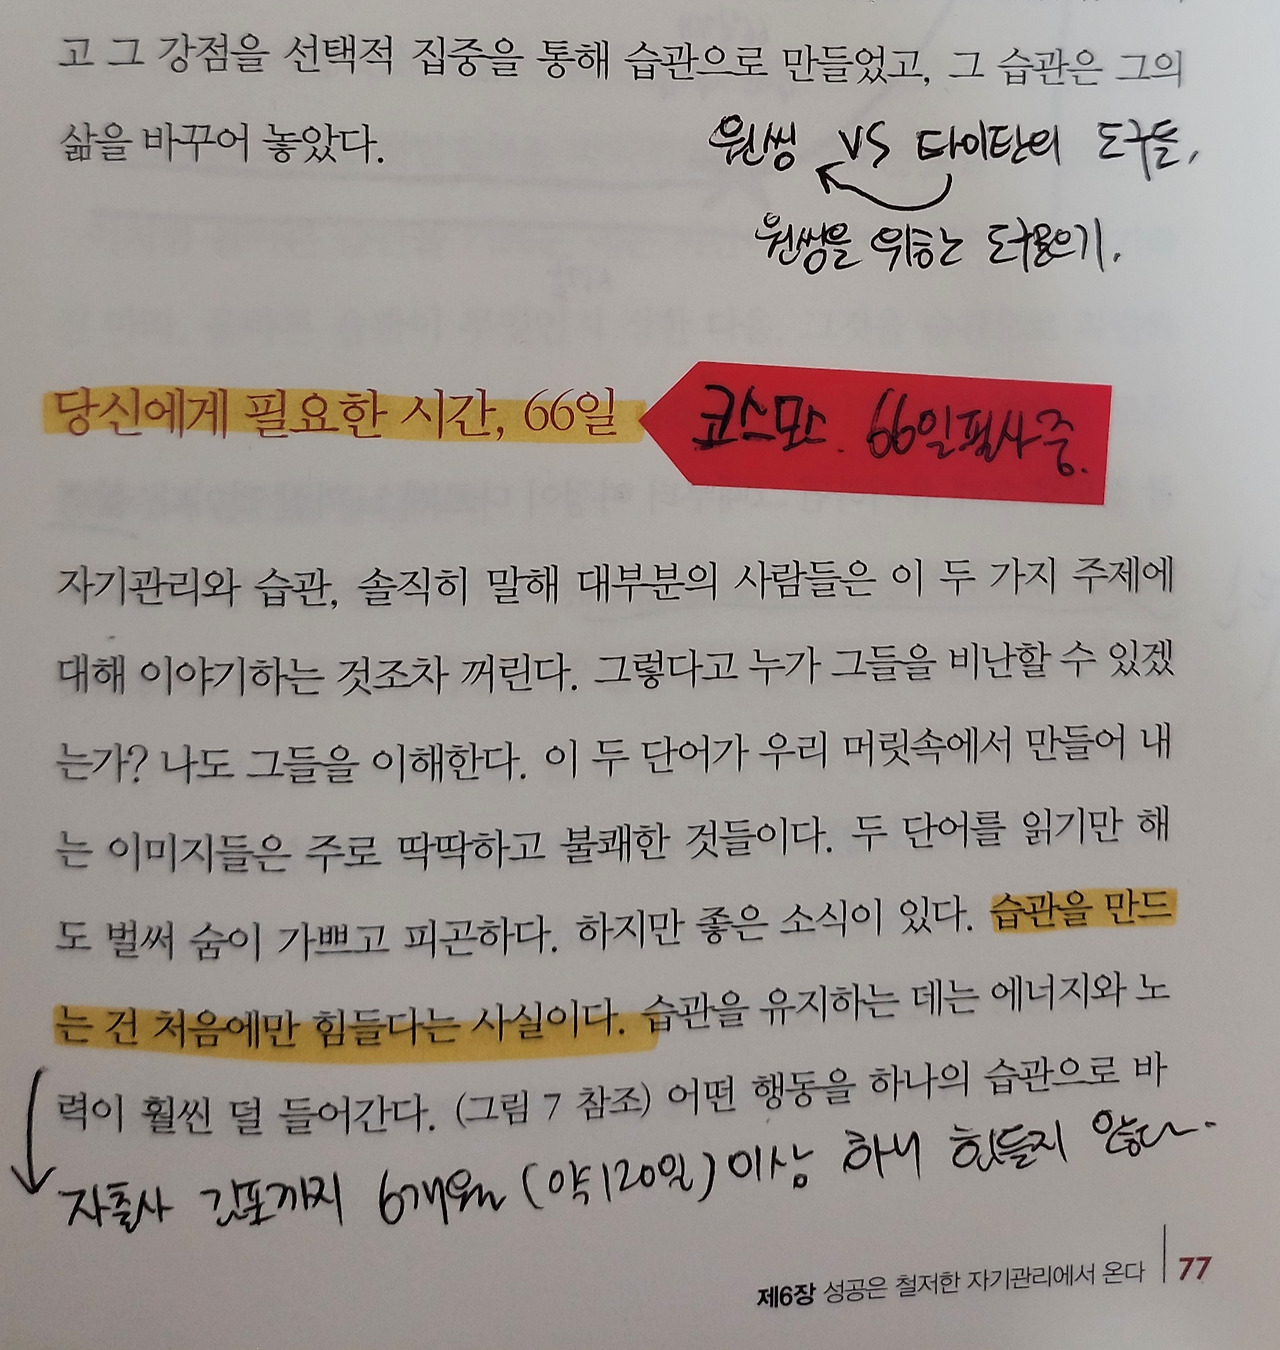 고 그 강점을 선택적 집중을 통해 습관으로 만들었고, 그 습관은 그의
삶을 바꾸어 놓았다.
원씽 VS 타이탄의 도구들,
원씽을 위하는 도구모으기.
당신에게 필요한 시간, 66일
코스모스. 66일필사중.
자기관리와 습관, 솔직히 말해 대부분의 사람들은 이 두 가지 주제에
대해 이야기하는 것조차 꺼린다. 그렇다고 누가 그들을 비난할 수 있겠
는가? 나도 그들을 이해한다. 이 두 단어가 우리 머릿속에서 만들어 내
는 이미지들은 주로 딱딱하고 불쾌한 것들이다. 두 단어를 읽기만 해
도 벌써 숨이 가쁘고 피곤하다. 하지만 좋은 소식이 있다. 습관을 만드
는 건 처음에만 힘들다는 사실이다. 습관을 유지하는 데는 에너지와 노
력이 훨씬 덜 들어간다. (그림 7 참조) 어떤 행동을 하나의 습관으로 바
자출사 김포까지 6개월 (약120일) 이상 하니 힘들지 않다.
제6장 성공은 철저한 자기관리에서 온다 77